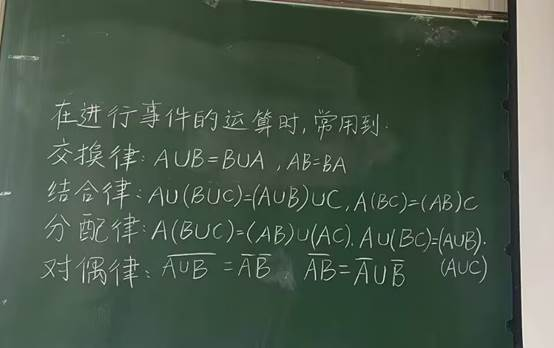 在进行事件的运算时,常用到:
交换律: A∪B=B∪A , AB=BA
结合律: A∪(B∪C)=(A∪B)∪C, A(BC)=(AB)C
分配律: A(B∪C)=(AB)∪(AC). A∪(BC)=(A∪B)·
(A∪C)
对偶律: A̅∪̅B̅ = A̅ B̅ , A̅B̅ = A̅∪B̅